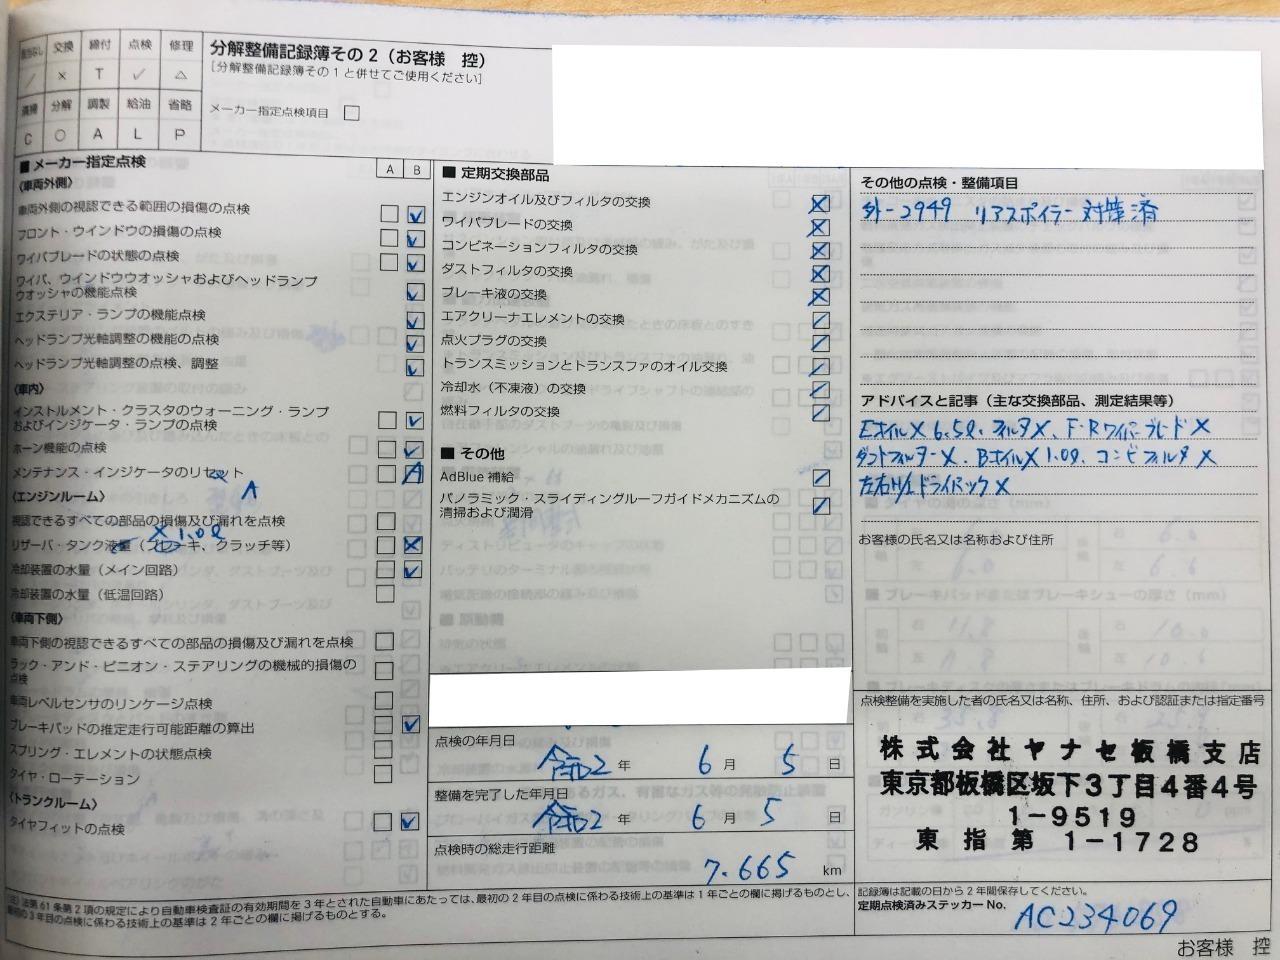 交換 締付 点検 修理
／ × T ✓ △
清掃 分解 調製 給油 省略
C ○ A L P
分解整備記録簿その2（お客様 控）
［分解整備記録簿その1と併せてご使用ください］
メーカー指定点検項目 □
■ メーカー指定点検 A B
〈車両外側〉
車両外側の視認できる範囲の損傷の点検
フロント・ウインドウの損傷の点検
ワイパブレードの状態の点検
ワイパ、ウインドウウオッシャおよびヘッドランプ
ウオッシャの機能点検
エクステリア・ランプの機能点検
ヘッドランプ光軸調整の機能の点検
ヘッドランプ光軸調整の点検、調整
〈車内〉
インストルメント・クラスタのウォーニング・ランプ
およびインジケータ・ランプの点検
ホーン機能の点検
メンテナンス・インジケータのリセット A
A
〈エンジンルーム〉
視認できるすべての部品の損傷及び漏れを点検
× 1.0ℓ
リザーバ・タンク液量（ブレーキ、クラッチ等）
冷却装置の水量（メイン回路）
冷却装置の水量（低温回路）
〈車両下側〉
車両下側の視認できるすべての部品の損傷及び漏れを点検
ラック・アンド・ピニオン・ステアリングの機械的損傷の
点検
車両レベルセンサのリンケージ点検
ブレーキパッドの推定走行可能距離の算出
スプリング・エレメントの状態点検
タイヤ・ローテーション
〈トランクルーム〉
タイヤフィットの点検
■ 定期交換部品
エンジンオイル及びフィルタの交換
ワイパブレードの交換
コンビネーションフィルタの交換
ダストフィルタの交換
ブレーキ液の交換
エアクリーナエレメントの交換
点火プラグの交換
トランスミッションとトランスファのオイル交換
冷却水（不凍液）の交換
燃料フィルタの交換
■ その他
AdBlue 補給
パノラミック・スライディングルーフガイドメカニズムの
清掃および潤滑
点検の年月日
令和2 年 6 月 5 日
整備を完了した年月日
令和2 年 6 月 5 日
点検時の総走行距離
7.665 km
その他の点検・整備項目
外-2949 リアスポイラー対策済
アドバイスと記事（主な交換部品、測定結果等）
Eオイル× 6.5ℓ. フィルタ×、F・Rワイパーブレード×
ダストフィルター×、Bオイル×1.0ℓ. コンビフィルタ×
ドライバック×
お客様の氏名又は名称および住所
点検整備を実施した者の氏名又は名称、住所、および認証または指定番号
株式会社ヤナセ板橋支店
東京都板橋区坂下3丁目4番4号
1-9519
東指第 1-1728
記録簿は記載の日から2年間保存してください。
定期点検済みステッカーNo.
AC234069
法第61条第2項の規定により自動車検査証の有効期間を3年とされた自動車にあたっては、最初の2年目の点検に係わる技術上の基準は1年ごとの欄に掲げるものとし、
最初の3年目の点検に係わる技術上の基準は2年ごとの欄に掲げるものとする。
お客様 控